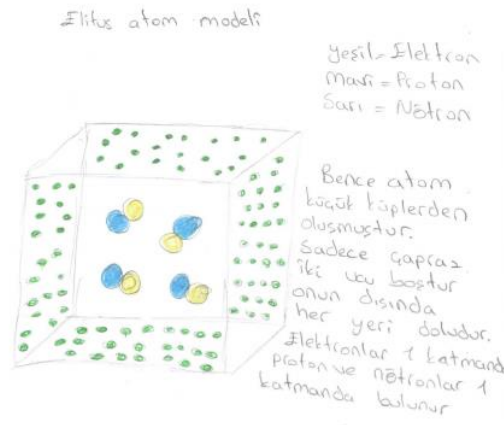 Elitus atom modeli
yeşil = Elektron
mavi = Proton
Sarı = Nötron
Bence atom
küçük küplerden
oluşmuştur.
Sadece çapraz
iki ucu boştur
onun dışında
her yeri doludur.
Elektronlar 1 katmand
proton ve nötronlar 1
katmanda bulunur